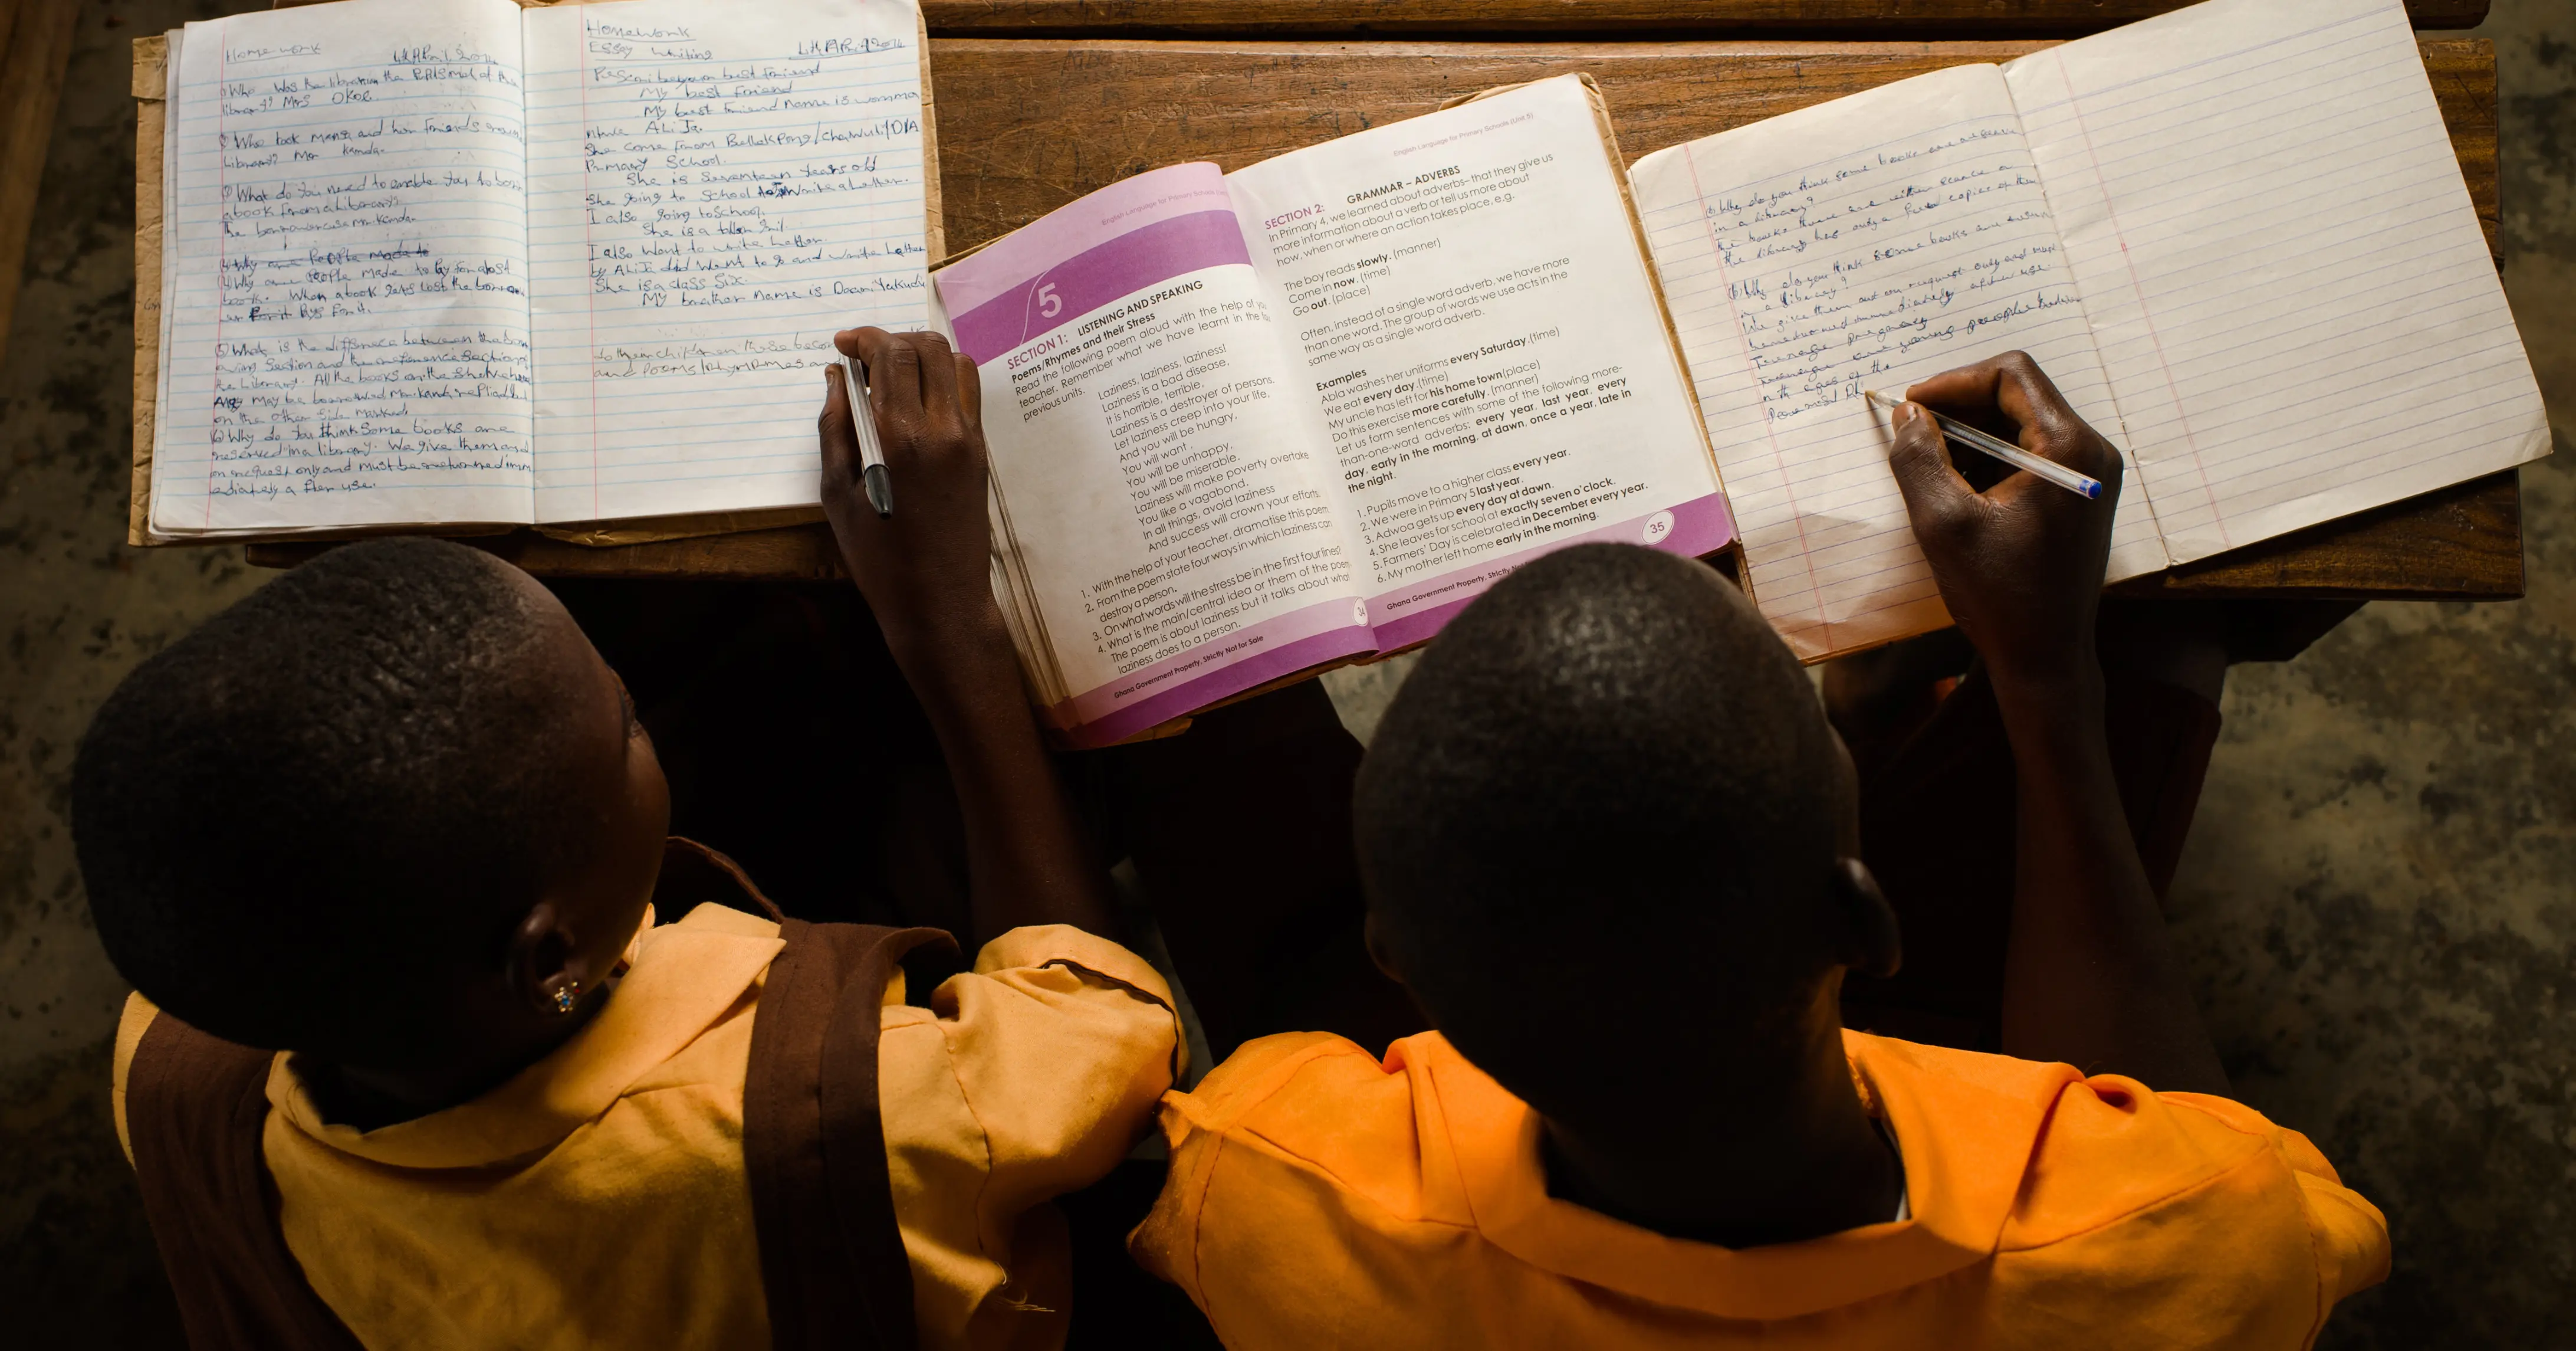 Homework
1) Who was the librarian the
library? Mrs OKOE
2) Who took mansa and her friends
Library? Mr Kanda.
3) What do you need to enable you to
a book from a library?
The
4) Why are People made to
4) Why are people made to Py for a lost
book. When a book gets lost the
Pys for it.
5) What is the difference between the
Section and the reference Section
the Library. All the books on the
may be borrowed Mr Kanda, replied, but
on the other Side marked.
6) Why do you think Some books are
reserved in a library. We give them
on request only and must be returned imm
ediately a fter use.
Homework
Essay Writing
My best Friend
My best Friend name is
ALi Ja.
She come from
Primary School.
She is Seventeen Years old
She going to School
I also going to School.
She is a
I also Want to write
by ALiJa did Want to go and
She is a class Six.
My brother name is
and Poems/
English Language for Primary Schools
5
SECTION 1: LISTENING AND SPEAKING
Poems/Rhymes and their Stress
Read the following poem aloud with the help of
teacher. Remember what we have learnt in the
previous units.
Laziness, laziness, laziness!
Laziness is a bad disease,
It is horrible, terrible,
Laziness is a destroyer of persons.
Let laziness creep into your life,
And you will be hungry,
You will want.
You will be unhappy,
You will be miserable.
Laziness will make poverty overtake
You like a vagabond.
In all things, avoid laziness
And success will crown your efforts.
1. With the help of your teacher, dramatise this poem.
2. From the poem state four ways in which laziness can
destroy a person.
3. On what words will the stress be in the first four lines
4. What is the main/central idea or them of the poem
The poem is about laziness but it talks about what
laziness does to a person.
Ghana Government Property, Strictly Not for Sale
34
English Language for Primary Schools (Unit 5)
SECTION 2: GRAMMAR – ADVERBS
In Primary 4, we learned about adverbs– that they give us
more information about a verb or tell us more about
how, when or where an action takes place, e.g.
The boy reads slowly. (manner)
Come in now. (time)
Go out. (place)
Often, instead of a single word adverb, we have more
than one word. The group of words we use acts in the
same way as a single word adverb.
Examples
Abla washes her uniforms every Saturday.(time)
We eat every day.(time)
My uncle has left for his home town(place)
Do this exercise more carefully. (manner)
Let us form sentences with some of the following more-
than-one-word adverbs: every year, last year, every
day, early in the morning, at dawn, once a year, late in
the night.
1. Pupils move to a higher class every year.
2. We were in Primary 5 last year.
3. Adwoa gets up every day at dawn.
4. She leaves for school at exactly seven o'clock.
5. Farmers' Day is celebrated in December every year.
6. My mother left home early in the morning.
Ghana Government Property, Strictly
35
Why do you think some books are
in a library?
the books there are
the library has only a few copies of them
Why do you think some books are
in a library?
We give them out on request only and must
immediately after use.
Teenage pregnancy
Teenage are young people
n the ages of